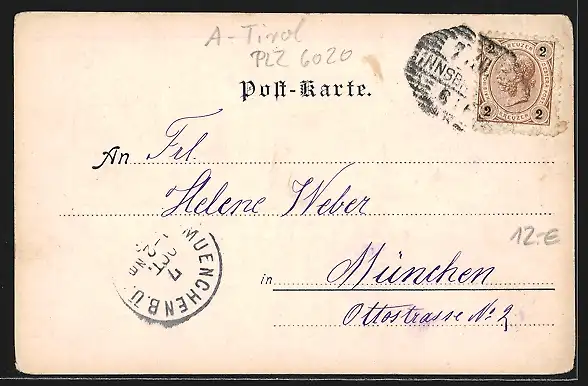 A-Tirol
PLZ 6020
2 KREUZER 2
INNSBR
2 KREUZER 2
Post-Karte.
An Frl.
Helene Weber
MUENCHEN B.U.
7 OCT
12.-E
in München
Ottostrasse No. 2